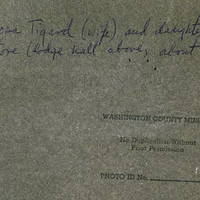 Tigard (wife) and daughte
(lodge hall above) about
WASHINGTON COUNTY MUS
No Duplication Without
Prior Permission
PHOTO ID No.